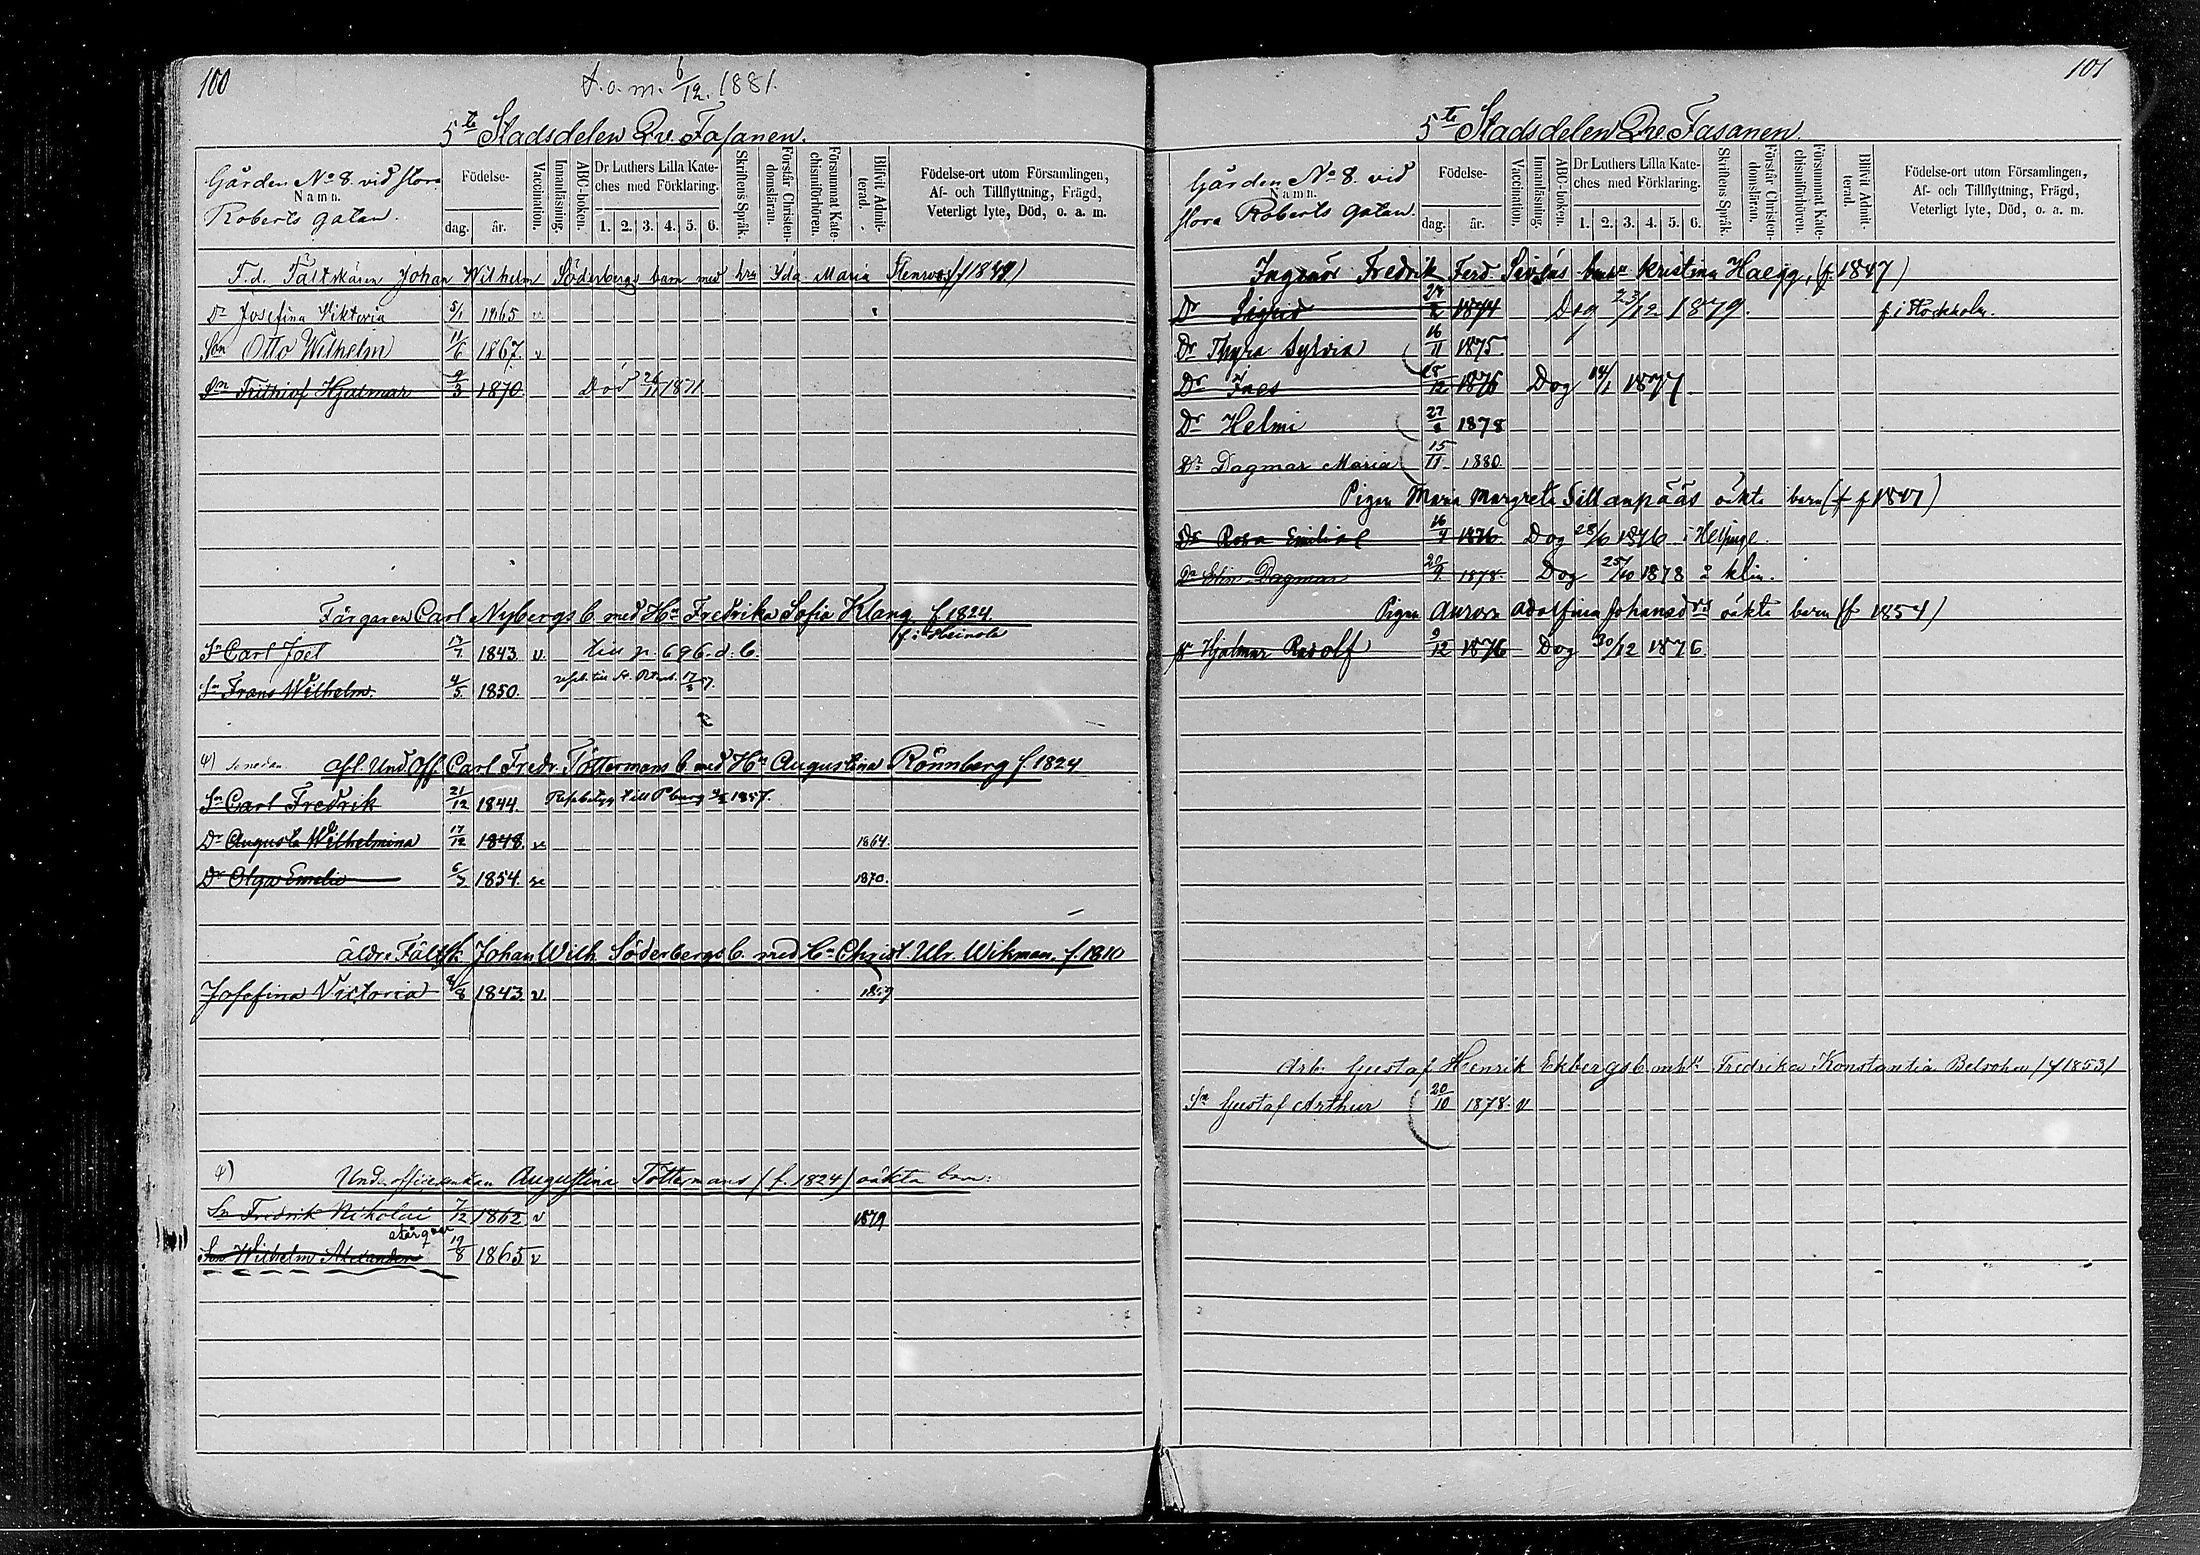 100
t.o.m. 6/12. 1881.
5te Stadsdelen Qv. Fasanen.
Gården No 8. vid stora
Namn.
Roberts gatan.
Födelse-
dag. år.
Vaccination.
Innanläsning.
ABC-boken.
Dr Luthers Lilla Kate-
ches med Förklaring.
1. 2. 3. 4. 5. 6.
Skriftens Språk.
Förstår Christen-
domsläran.
Försummat Kate-
chismiförhören.
Blifvit Admit-
terad.
Födelse-ort utom Församlingen,
Af- och Tillflyttning, Frägd,
Veterligt lyte, Död, o. a. m.
F.d. Fältskären Johan Wilhelm Söderbergs barn med hru Ida Maria
Dr Josefina Viktoria 5/1 1865 v
Son Otto Wilhelm 11/6 1867. v
Sn Frithiof Hjalmar 9/3 1870. Död 1871.
Färgaren Carl Nybergs b. med Hu Fredrika Sofia Klang f. 1824.
f. i Heinola
Sn Carl Joel 17/7 1843. v. till p. 696. d. b.
Sn Frans Wilhelm. 4/5 1850.
4) senedan. Afl. Und Off. Carl Fredr. Töttermans b. med Hu Augustina Rönnberg f. 1824
Sn Carl Fredrik 21/12 1844. 1857.
Dr Augusta Wilhelmina 17/12 1848. v 1864.
Dr Olga Emelie 6/3 1854. 1870.
äldre Fältsk. Johan Wilh Söderbergs b. med Hu Christ. Ulr. Wikman. f. 1810
Josefina Victoria 1843 v.
4) Underofficerenkan Augustina Töttermans (f. 1824) oäkta barn:
Sn Fredrik Nikolai 7/12 1862 v 1879
Son Wilhelm Alexander 19/8 1865 v
101
5te Stadsdelen Qv. Fasanen
Gården No 8. vid
Namn.
stora Roberts gatan.
Födelse-
dag. år.
Vaccination.
Innanläsning.
ABC-boken.
Dr Luthers Lilla Kate-
ches med Förklaring.
1. 2. 3. 4. 5. 6.
Skriftens Språk.
Förstår Christen-
domsläran.
Försummat Kate-
chismiförhören.
Blifvit Admit-
terad.
Födelse-ort utom Församlingen,
Af- och Tillflyttning, Frägd,
Veterligt lyte, Död, o. a. m.
Fredrik Ferd Kristina Haegg, (f. 1847)
Dr Sigrid 1874 Dog 23/12 1879. f. i Stockholm.
Dr Thyra Sylvia 16/11 1875.
Dr Ines 1876 Dog 14/1 1877.
Dr Helmi 27/8 1878
Dr Dagmar Maria 15/11 1880.
Pigan Maria Margreta Sillanpääs oäkta barn
Dr Rosa Emilia 1876. Dog 28/6 1876 i Helsinge.
Dr Elin Dagmar 20/9 1878. Dog 25/10 1878 å klin.
Pigan Aurora Adolfina Johansdrs oäkta barn (f 1854)
Sn Hjalmar Rudolf 9/12 1876 Dog 30/12 1876.
Arb. Gustaf Henrik Ekbergs b. m. hu Fredrika Konstantia (f 1853)
Sn Gustaf Arthur 20/10 1878. v